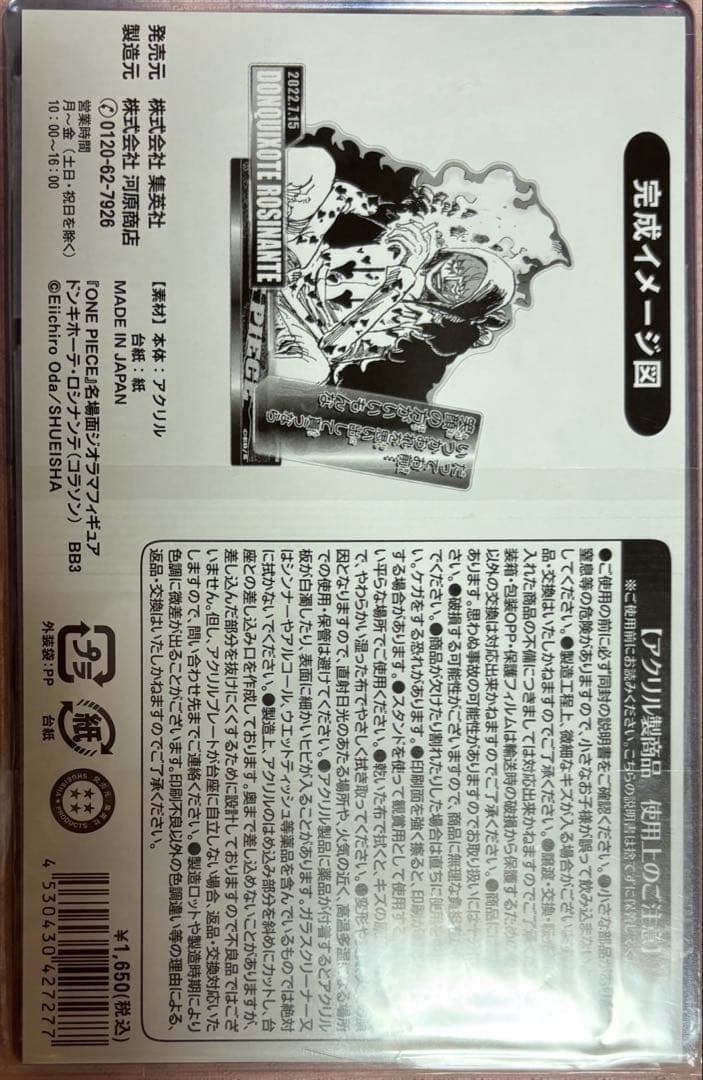 完成イメージ図
2022.7.15
DONQUIXOTE ROSINANTE
だってお前
いつかおれを思い出して貰うなら
笑顔の方がいいもんな
発売元 株式会社 集英社
製造元 株式会社 河原商店
0120-62-7926
営業時間
月〜金(土日・祝日を除く)
10:00〜16:00
【素材】本体:アクリル
台紙:紙
MADE IN JAPAN
『ONE PIECE』名場面ジオラマフィギュア
ドンキホーテ・ロシナンテ(コラソン) BB3
©Eiichiro Oda/SHUEISHA
【アクリル製商品 使用上のご注意
※ご使用前にお読みください。こちらの説明書は捨てずに保管
●ご使用の前に必ず同封の説明書をご確認ください。●小さな部品
窒息等の危険がありますので、小さなお子様が誤って飲み込まない
してください。●製造工程上、微細なキズが入る場合がございま
品・交換はいたしかねますのでご了承ください。●譲渡・交換・
入れた商品の不備につきましては対応出来かねますのでご了
装箱・包装OPP・保護フィルムは輸送時の破損から保護するため
以外の交換は対応出来かねますのでご了承ください。●商品に
あります。思わぬ事故の可能性がありますのでお取り扱いには十
さい。●破損する可能性がございますので、商品に無理な負担を
でください。●商品が欠けたり割れたりした場合は直ちに使用を
い。ケガをする恐れがあります。●印刷面を強く擦ると、印刷が
する場合があります。●スタンドを使って観賞用として使用す
い平らな場所でご使用ください。●乾いた布で拭くと、キズの
で、やわらかい湿った布でやさしく拭き取ってください。●変形や
因となりますので、直射日光のあたる場所や、火気の近く、高温多湿になる場所
での使用・保管は避けてください。●アクリル製品に薬品が付着するとアクリル
板が白濁したり、表面に細かいヒビが入ることがあります。ガラスクリーナー又
はシンナーやアルコール、ウエットティッシュ等薬品を含んでいるものでは絶対
に拭かないでください。●製造上、アクリルのはめ込み部分を斜めにカットし、台
座との差し込み口を作成しております。奥まで差し込めないことがありますが、
差し込んだ部分を抜けにくくするために設計しておりますので不良品ではござ
いません。但し、アクリルプレートが台座に自立しない場合、返品・交換対応いた
しますので、問い合わせ先までご連絡ください。●製造ロットや製造時期により
色調に微差が出ることがございます。印刷不良以外の色調違い等の理由による、
返品・交換はいたしかねますのでご了承ください。
プラ
外装袋:PP
紙
台紙
¥1,650(税込)
4 530430 427277